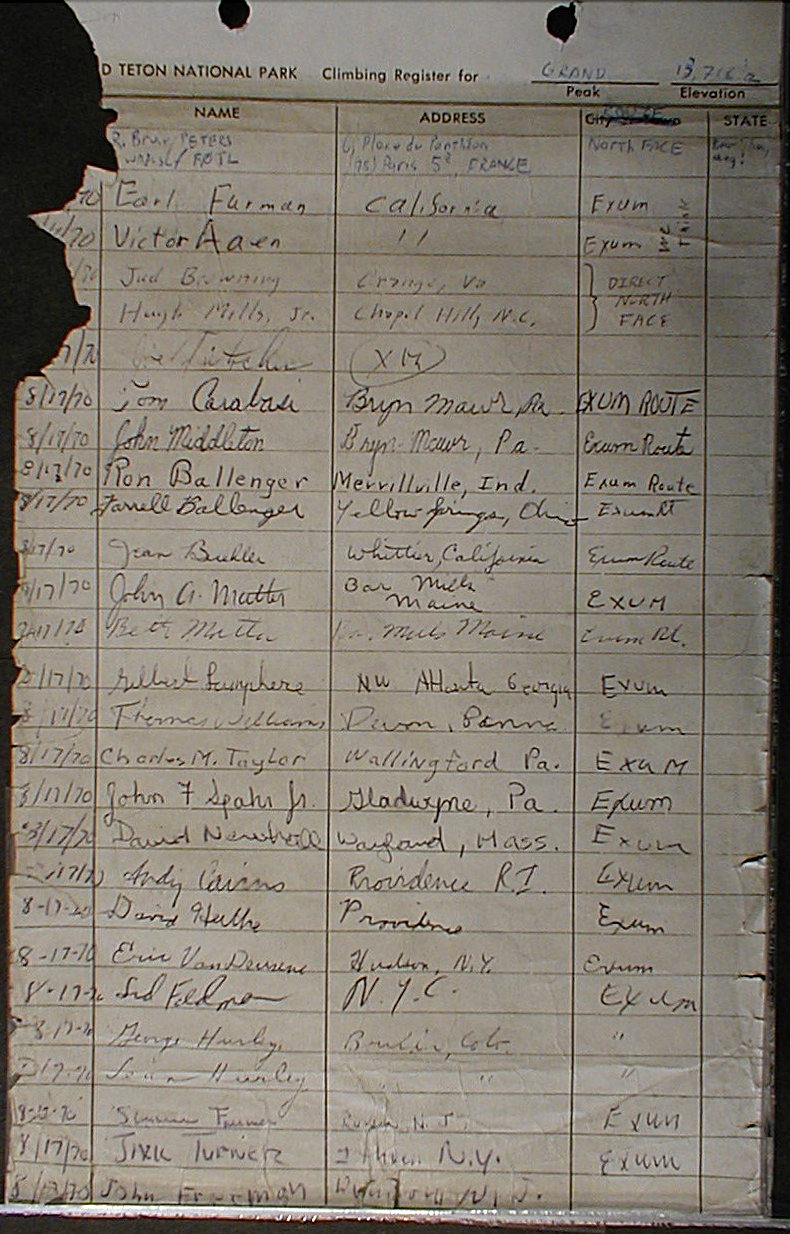 D TETON NATIONAL PARK Climbing Register for GRAND
Peak Elevation
NAME ADDRESS ROUTE STATE
PETERS NORTH FACE
Paris 5e, FRANCE
70 Earl Furman California Exum
/70 Victor Aaen " Exum We Think
Jud Browning Orange, Va DIRECT
Hugh Mills, Jr. Chapel Hill, N.C. NORTH
FACE
7/70
8/17/70 Tom Carabasi Bryn Mawr, Pa. EXUM ROUTE
8/17/70 John Middleton Bryn Mawr, Pa. Exum Route
8/17/70 Ron Ballenger Merrillville, Ind. Exum Route
8/17/70 Farrell Ballenger Yellow Springs, Ohio Exum Rt
8/17/70 Jean Buehler Whittier, California Exum Route
8/17/70 John A. Mutter Bar Mills
Maine EXUM
Beth Mills Maine Exum Rt.
8/17/70 Gilbert NW Atlanta Georgia Exum
8/17/70 Thomas Williams Devon, Penna. Exum
8/17/70 Charles M. Taylor Wallingford Pa. EXUM
8/17/70 John F Spahr Jr. Gladwyne, Pa. Exum
8/17/70 David Newhall Wayland, Mass. Exum
8/17/70 Andy Cairns Providence R.I. Exum
8-17-70 David Providence Exum
8-17-70 Eric VanDeusene Hudson, N.Y. Exum
8-17-70 Sid Feldman N.Y.C. Exum
8-17-70 George Hurley Colo. "
Hurley " "
N.J. Exum
8/17/70 Turner N.Y. Exum
8/17/70 John Freeman N.J.